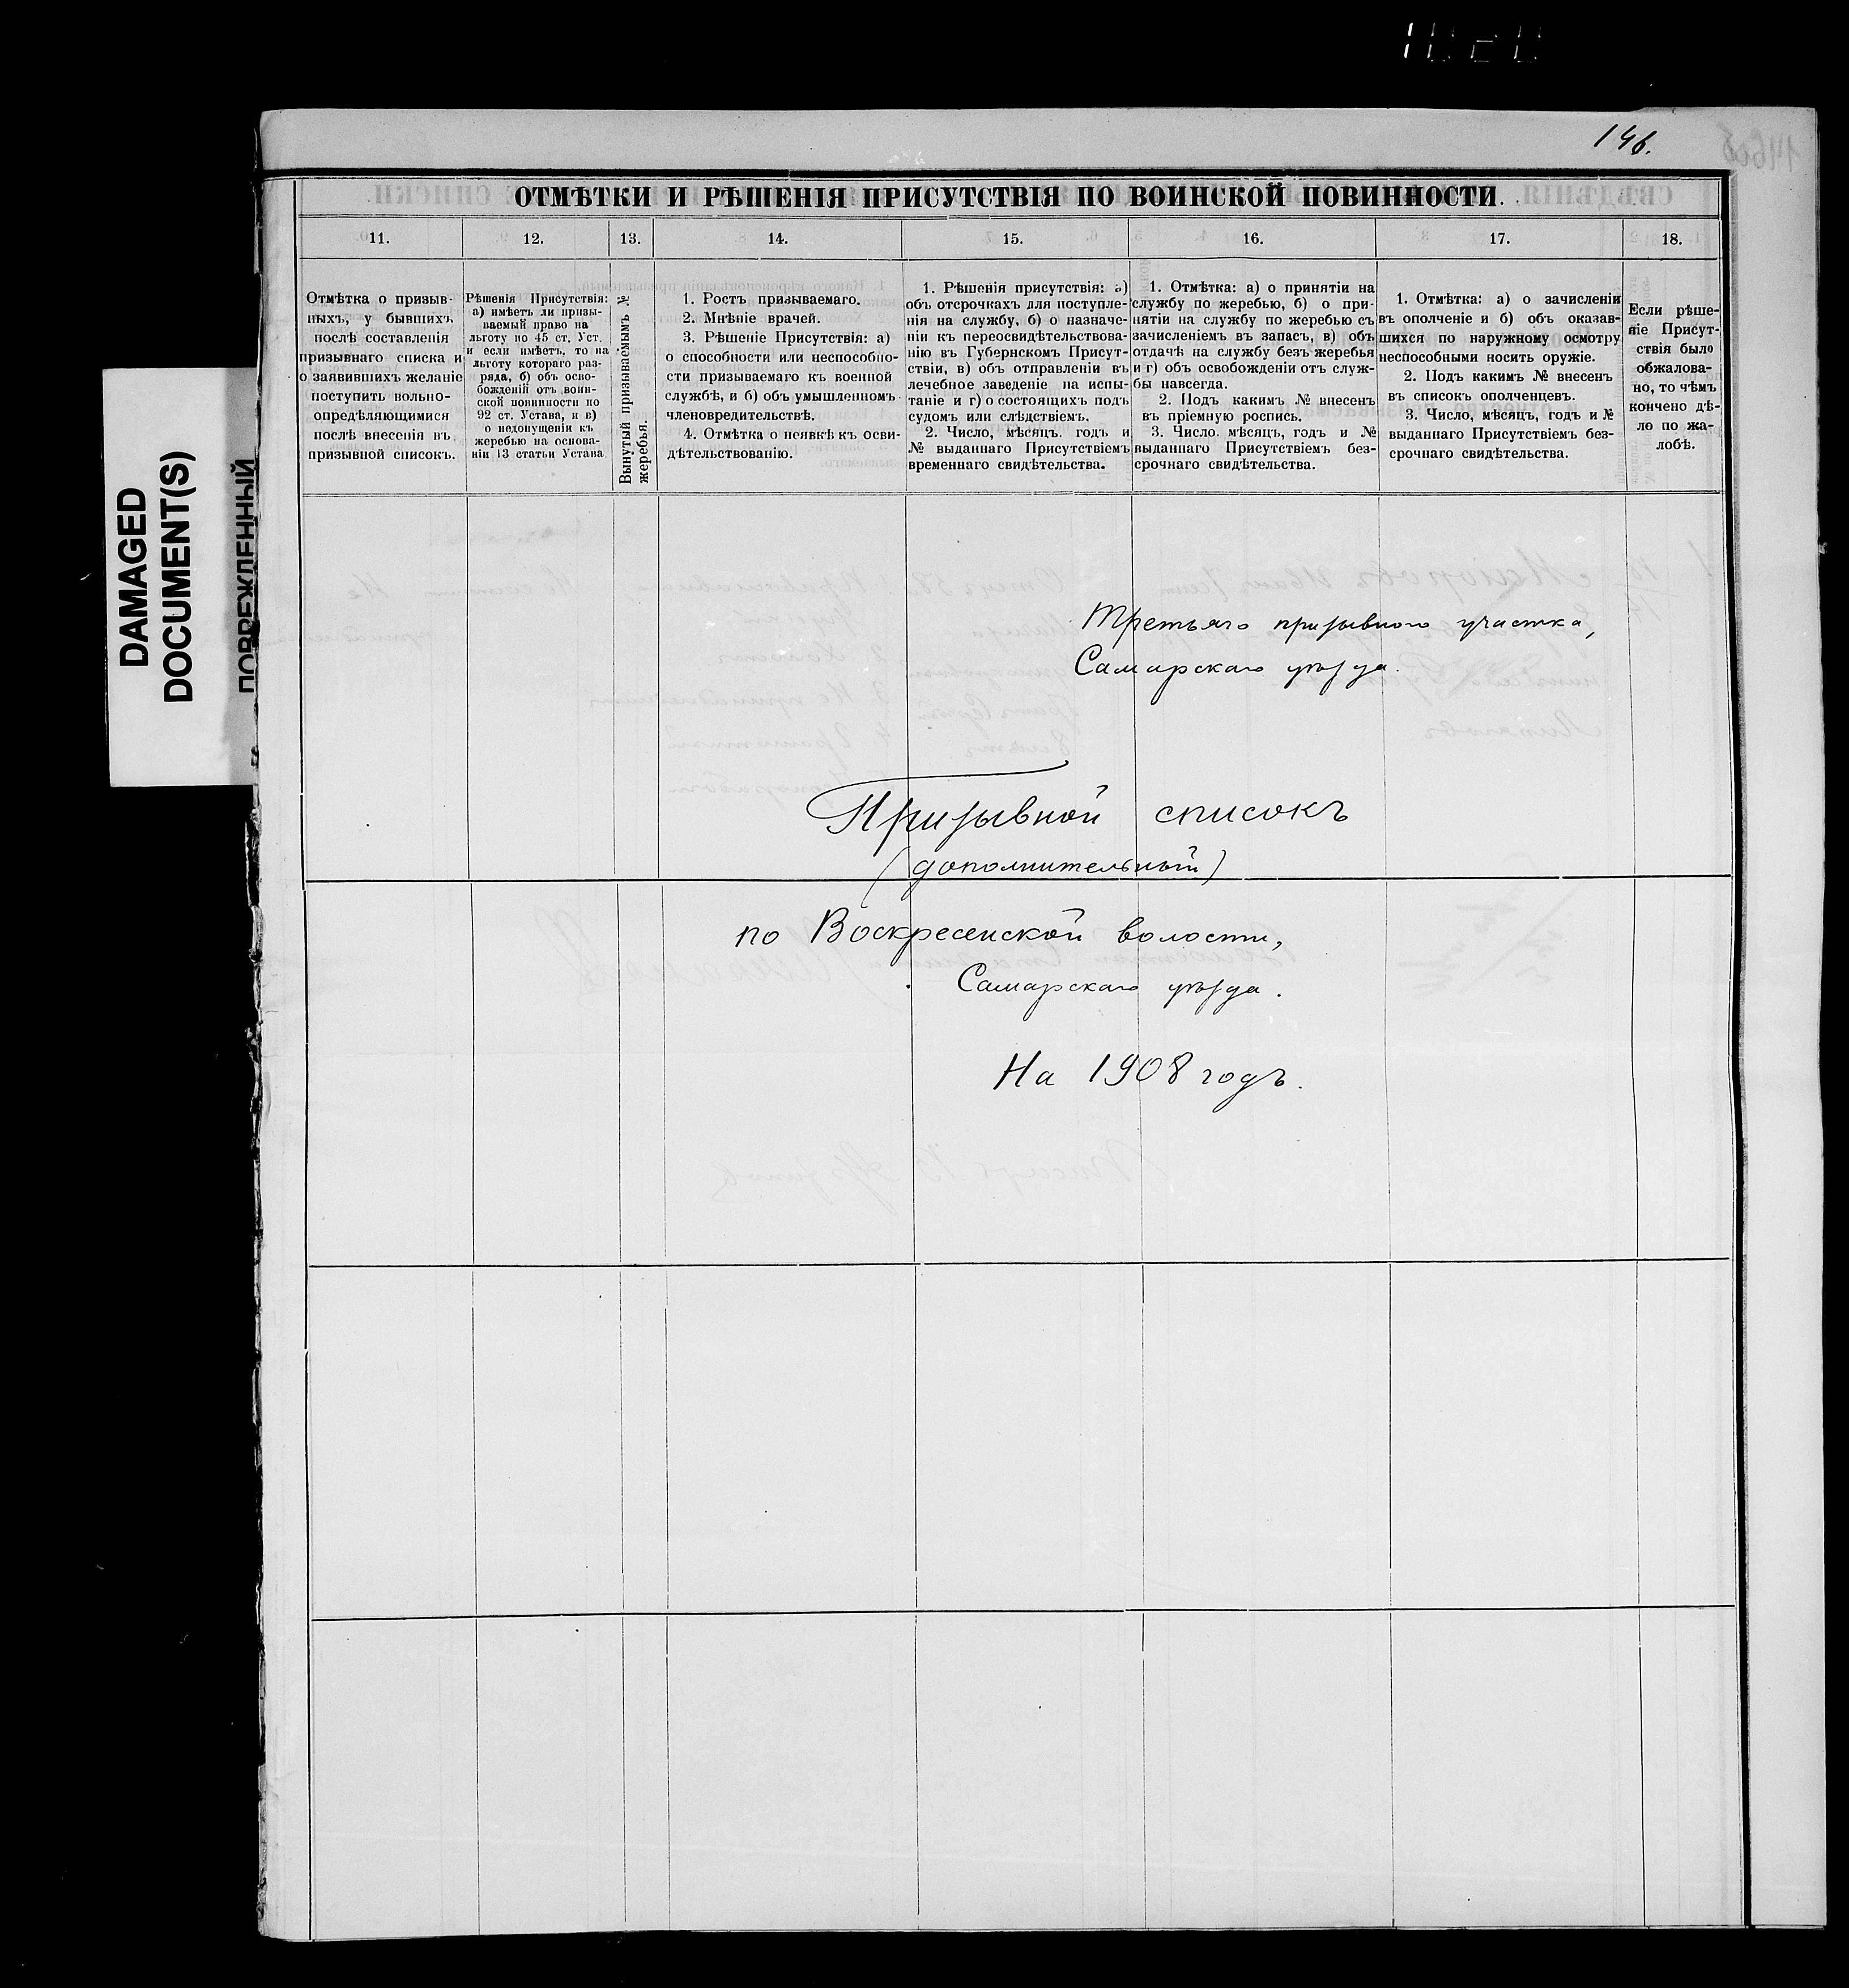 146.
ОТМѢТКИ И РѢШЕНІЯ ПРИСУТСТВІЯ ПО ВОИНСКОЙ ПОВИННОСТИ.
11. 12. 13. 14. 15. 16. 17. 18.
Отмѣтка о призыв-
ныхъ, у бывшихъ
послѣ составленія
призывнаго списка и
о заявившихъ желаніе
поступить вольно-
опредѣляющимися
послѣ внесенія въ
призывной списокъ.
Рѣшенія Присутствія:
а) имѣетъ ли призы-
ваемый право на
льготу по 45 ст. Уст.
и если имѣетъ, то на
льготу котораго раз-
ряда, б) объ осво-
божденіи отъ воин-
ской повинности по
92 ст. Устава, и в)
о недопущеніи къ
жеребью на основа-
ніи 13 статьи Устава
Вынутый призываемымъ №
жеребья.
1. Ростъ призываемаго.
2. Мнѣніе врачей.
3. Рѣшеніе Присутствія: а)
о способности или неспособно-
сти призываемаго къ военной
службѣ, и б) объ умышленномъ
членовредительствѣ.
4. Отмѣтка о неявкѣ къ осви-
дѣтельствованію.
1. Рѣшенія присутствія: а)
объ отсрочкахъ для поступле-
нія на службу, б) о назначе-
ніи къ переосвидѣтельствова-
нію въ Губернскомъ Присут-
ствіи, в) объ отправленіи въ
лечебное заведеніе на испы-
таніе и г) о состоящихъ подъ
судомъ или слѣдствіемъ.
2. Число, мѣсяцъ. годъ и
№ выданнаго Присутствіемъ
временнаго свидѣтельства.
1. Отмѣтка: а) о принятіи на
службу по жеребью, б) о при-
нятіи на службу по жеребью съ
зачисленіемъ въ запасъ, в) объ
отдачѣ на службу безъ жеребья
и г) объ освобожденіи отъ служ-
бы навсегда.
2. Подъ какимъ № внесенъ
въ пріемную роспись.
3. Число мѣсяцъ, годъ и №
выданнаго Присутствіемъ без-
срочнаго свидѣтельства.
1. Отмѣтка: а) о зачисленіи
въ ополченіе и б) объ оказав-
шихся по наружному осмотру
неспособными носить оружіе.
2. Подъ какимъ № внесенъ
въ списокъ ополченцевъ.
3. Число, мѣсяцъ, годъ и №
выданнаго Присутствіемъ без-
срочнаго свидѣтельства.
Если рѣше-
ніе Присут-
ствія было
обжалова-
но, то чѣмъ
кончено дѣ-
ло по жа-
лобѣ.
DAMAGED
DOCUMENT(S)
ПОВРЕЖДЕННЫЙ
Третьяго призывного участка,
Самарскаго уѣзда.
Призывной списокъ
(дополнительный)
по Воскресенской волости,
Самарскаго уѣзда.
На 1908 годъ.